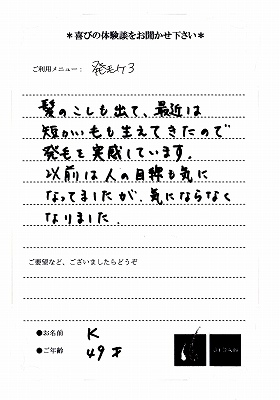 ＊喜びの体験談をお聞かせ下さい＊
ご利用メニュー： 発毛ケア3
髪のこしも出て、最近は
短かい毛も生えてきたので
発毛を実感しています。
以前は人の目線も気に
なってましたが、気にならなく
なりました。
ご要望など、ございましたらどうぞ
●お名前 K
●ご年齢 49才